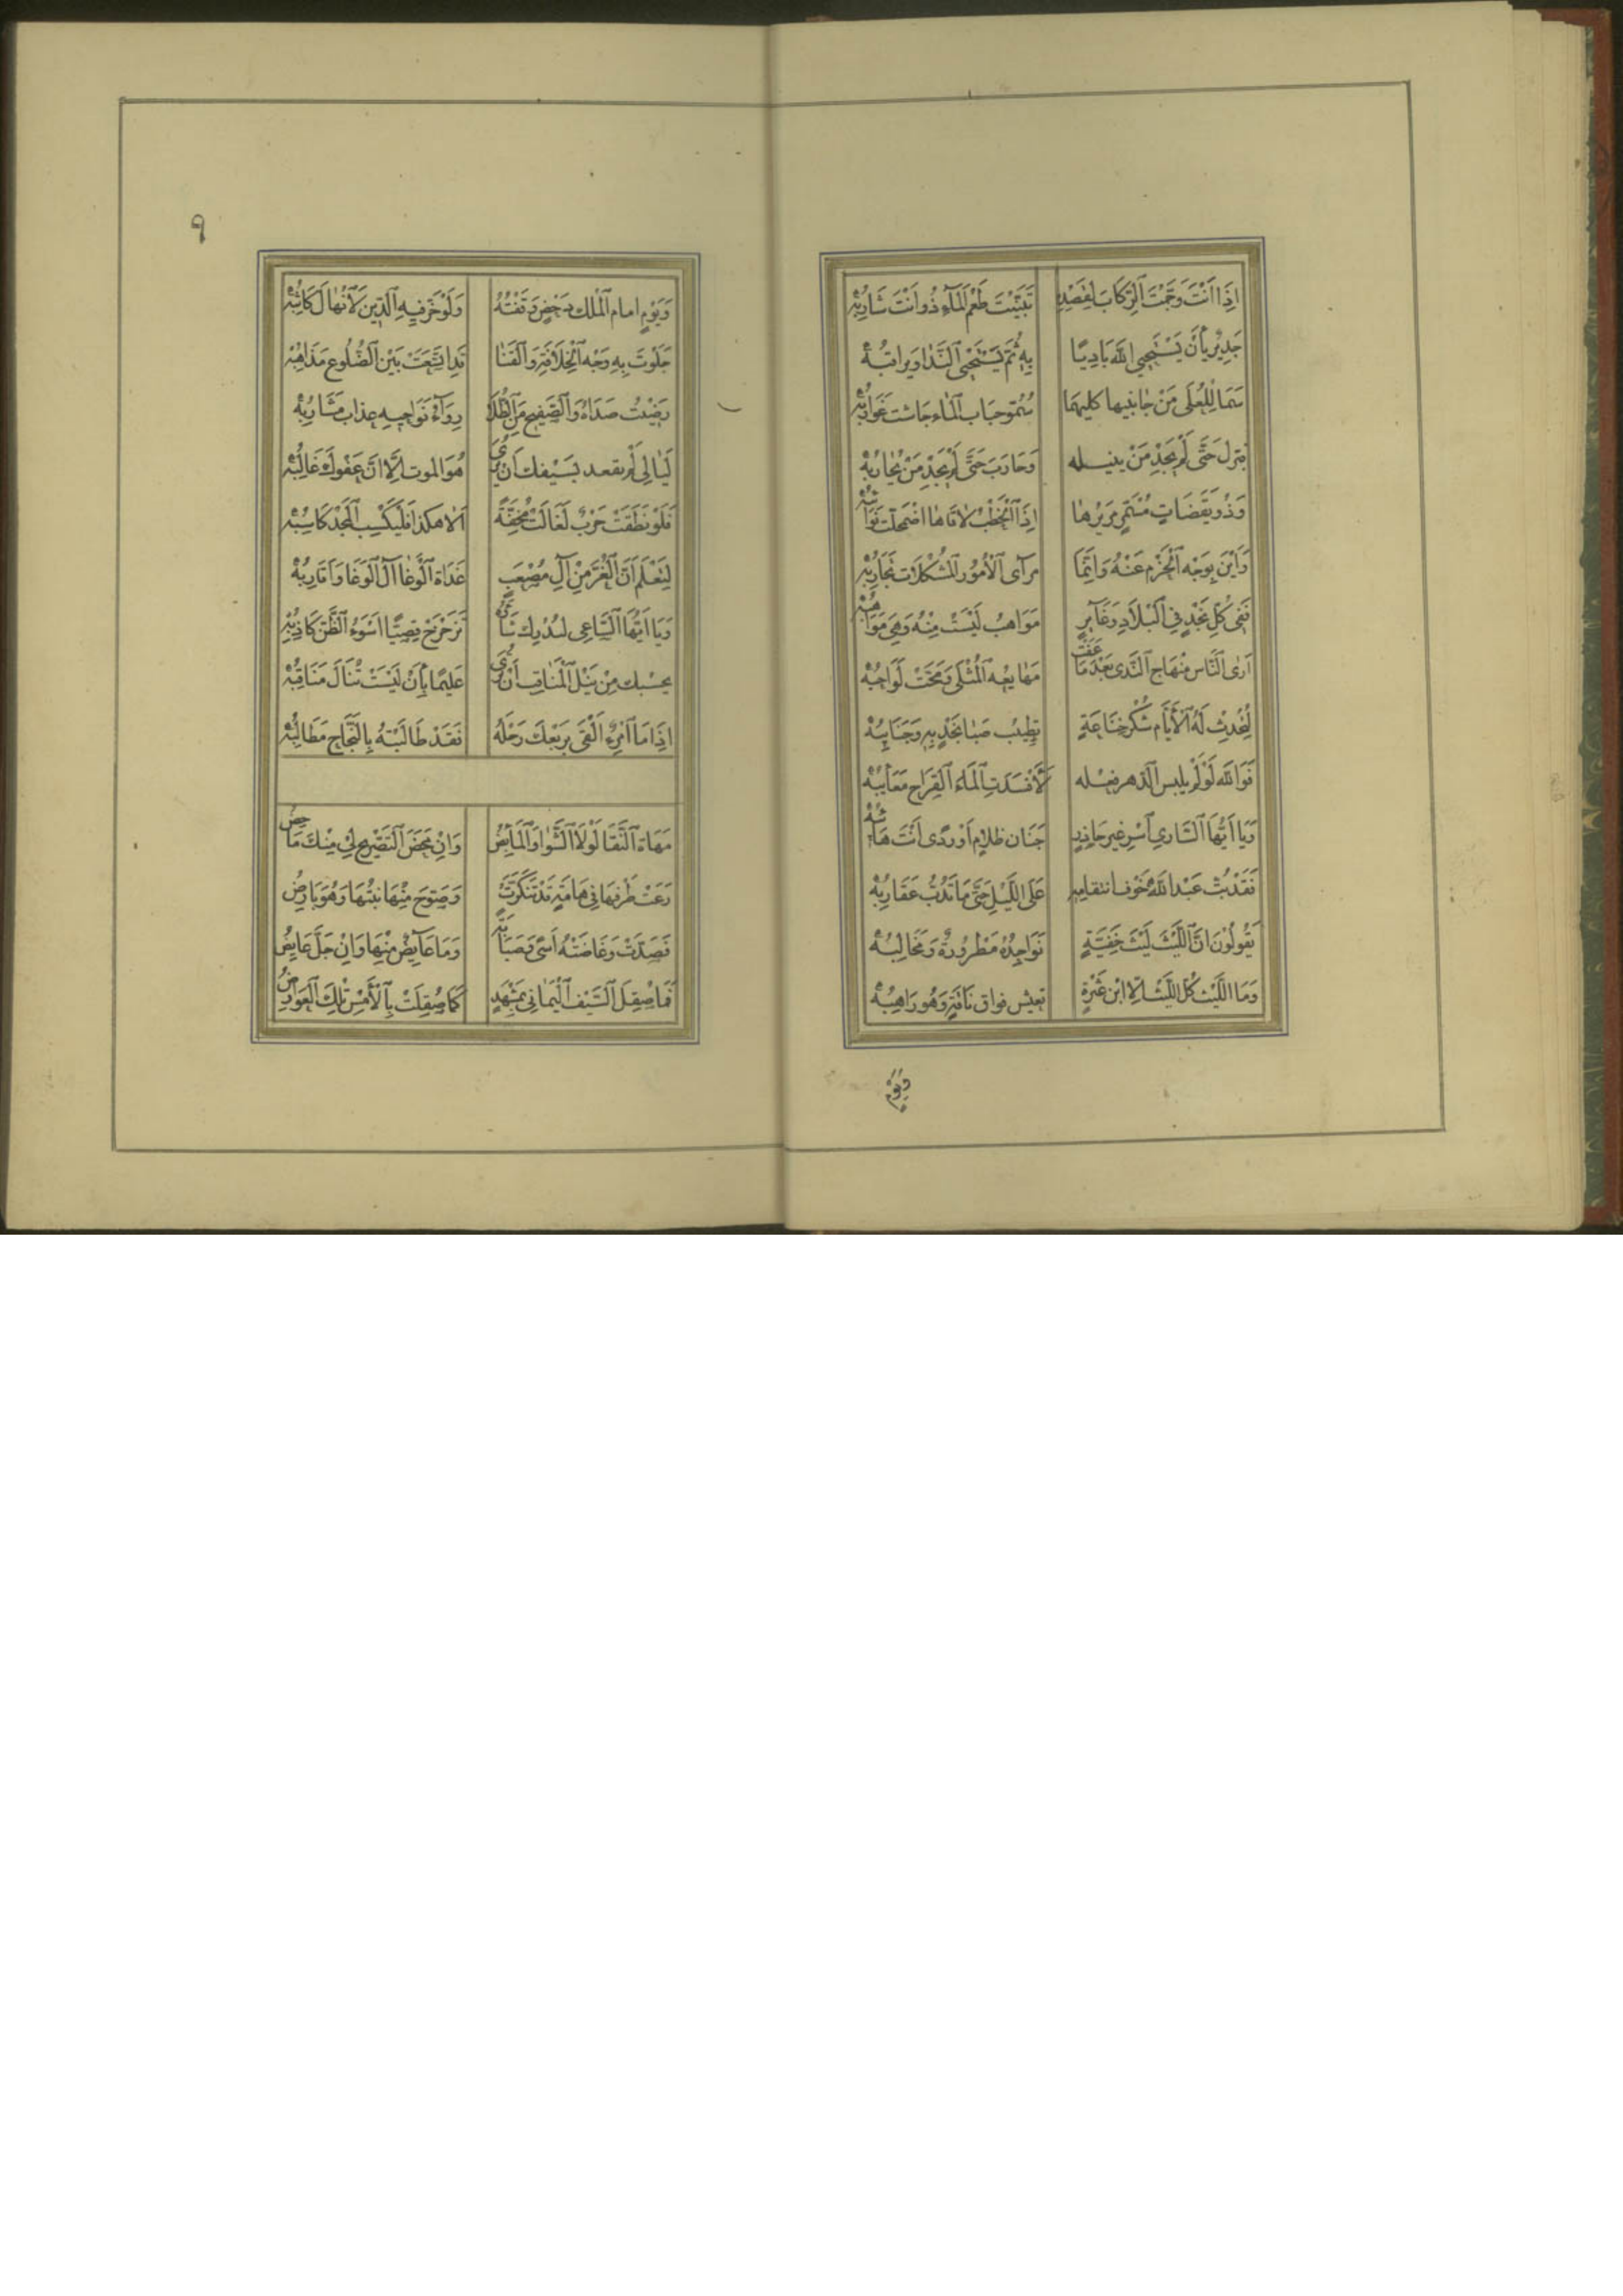 اِذَا اَنْتَ وَجَّهْتَ الرِّكَابَ لِقَصْدِهِ تَبَيَّنْتَ طَعْمَ الْمَاءِ ذُو اَنْتَ شَارِبُهْ
جَدِيْرٌ بِأَنْ يَسْتَحْيِىَ اللّٰهَ بَادِيًا بِهِ ثُمَّ يَسْتَحْيِى النَّدَا وَيُرَاقِبُهْ
سَمَا لِلْعُلَى مِنْ جَانِبَيْهَا كِلَيْهِمَا سُمُوَّ حَبَابِ الْمَاءِ جَاشَتْ غَوَارِبُهْ
فَنَوَّلَ حَتَّى لَمْ يَجِدْ مَنْ يُنِيْلُهُ وَحَارَبَ حَتَّى لَمْ يَجِدْ مَنْ يُحَارِبُهْ
وَذُو يَقَظَاتٍ مُسْتَمِرٍّ مَرِيْرُهَا اِذَا الْخَطْبُ لَاقَاهَا اضْمَحَلَّتْ نَوَائِبُهْ
وَاَيْنَ بِوَجْهِ الْحَزْمِ عَنْهُ وَاِنَّمَا مَرَآئِى الْاُمُوْرِ الْمُشْكِلَاتِ تَجَارِبُهْ
فَفِى كُلِّ نَجْدٍ فِى الْبِلَادِ وَغَآئِرٍ مَوَاهِبُ لَيْسَتْ مِنْهُ وَهِىَ مَوَاهِبُهْ
اَرَى النَّاسَ مِنْهَاجَ النَّدَى بَعْدَ مَا عَفَتْ مَهَايِعُهُ الْمُثْلَى وَمَحَّتْ لَوَاحِبُهْ
لِتُحْدِثْ لَهُ الْاَيَّامُ شُكْرَ خَنَاعَةٍ تَطِيْبُ صَبَا نَجْدٍ بِهِ وَجَنَائِبُهْ
فَوَاللّٰهِ لَوْ لَمْ يُلْبِسِ الدَّهْرَ فِعْلَهُ لَاَفْسَدَتِ الْمَاءَ الْقَرَاحَ مَعَائِبُهْ
وَيَا اَيُّهَا السَّارِى اَسْرِ غَيْرَ حَاذِرٍ جَنَانَ ظَلَامٍ اَوْ رَدًى اَنْتَ هَائِبُهْ
فَقَدْ بَثَّ عَبْدُ اللّٰهِ خَوْفَ انْتِقَامِهِ عَلَى اللَّيْلِ حَتَّى مَا تَدُبُّ عَقَارِبُهْ
يَقُوْلُوْنَ اِنَّ اللَّيْثَ لَيْثُ خَفِيَّةٍ نَوَاجِذُهُ مَطْرُوْرَةٌ وَمَخَالِبُهْ
وَمَا اللَّيْثُ كُلُّ اللَّيْثِ اِلَّا ابْنُ عَثْرَةٍ يَعِيْشُ فَوَاقَ نَاقَةٍ وَهْوَ رَاهِبُهْ
وَيَوْمٍ
٩
وَيَوْمٍ اَمَامَ الْمُلْكِ دَحْضٍ وَقَفْتَهُ وَلَوْ خَرَّ فِيْهِ الدِّيْنُ لَانْهَالَ كَاثِبُهْ
جَلَوْتَ بِهِ وَجْهَ الْخِلَافَةِ وَالْقَنَا قَدِ اتَّسَعَتْ بَيْنَ الضُّلُوْعِ مَذَاهِبُهْ
رَضِيْتَ صَدَاهُ وَالصَّفِيْحَ مِنَ الطُّلَا رِوَآءٌ نَوَاحِيْهِ عِذَابٌ مَشَارِبُهْ
لَيَالِى لَمْ يَقْعُدْ بِسَيْفِكَ اَنْ يُرَى هُوَ الْمَوْتُ اِلَّا اَنَّ عَفْوَكَ غَالِبُهْ
فَلَوْ نَطَقَتْ حَرْبٌ لَقَالَتْ مُحِقَّةً اَلَا هٰكَذَا فَلْيَكْسِبِ الْمَجْدَ كَاسِبُهْ
لِيَعْلَمَ اَنَّ الْغُرَّ مِنْ آلِ مُصْعَبٍ غَدَاةَ الْوَغَا آلُ الْوَغَا وَاَقَارِبُهْ
وَيَا اَيُّهَا السَّاعِى لِيُدْرِكَ شَأْوَهُ تَزَحْزَحْ قَصِيًّا اَسْوَءُ الظَّنِّ كَاذِبُهْ
بِحَسْبِكَ مِنْ نَيْلِ الْمَنَاقِبِ اَنْ تُرَى عَلِيْمًا بِأَنْ لَيْسَتْ تُنَالُ مَنَاقِبُهْ
اِذَا مَا امْرُءٌ اَلْقَى بِرَبْعِكَ رَحْلَهُ فَقَدْ طَالَبَتْهُ بِالنَّجَاحِ مَطَالِبُهْ
مَهَاةَ النَّقَا لَوْلَا الشَّوَا وَالْمَآبِضُ وَاِنْ مَحَضَ التَّصْرِيْحَ لِى مِنْكَ مَاحِضُ
رَعَتْ طَرْفَهَا فِى هَامَةٍ قَدْ تَنَكَّرَتْ وَصَوَّحَ مِنْهَا نَبْتُهَا وَهُوَ بَارِضُ
فَصَدَّتْ وَعَاضَتْهُ اَسًى وَصَبَابَةً وَمَا عَآئِضٌ مِنْهَا وَاِنْ جَلَّ عَايِضُ
فَمَا صُقِلَ السَّيْفُ الْيَمَانِى بِمَشْهَدٍ كَمَا صُقِلَتْ بِالْأَمْسِ تِلْكَ الْعَوَارِضُ